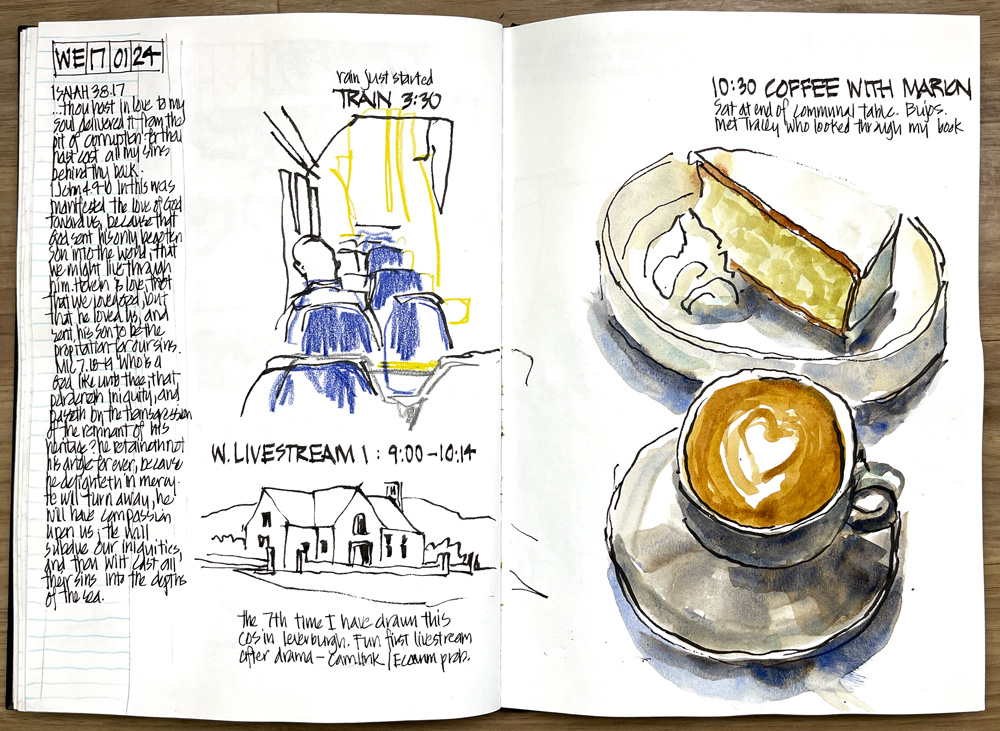 WE 17 01 24
ISAIAH 38.17
...thou hast in love to my
soul delivered it from the
pit of corruption: for thou
hast cast all my sins
behind thy back.
1 John 4.9-10 In this was
manifested the love of God
toward us, because that
God sent his only begotten
son into the world, that
we might live through
him. Herein is love, not
that we loved God, but
that he loved us, and
sent his son to be the
propitiation for our sins.
Mic 7.18-19 Who is a
God like unto thee, that
pardoneth iniquity, and
passeth by the transgression
of the remnant of his
heritage? he retaineth not
his anger for ever, because
he delighteth in mercy.
He will turn away, he
will have compassion
upon us; he will
subdue our iniquities,
and thou wilt cast all
their sins into the depths
of the sea.
rain just started
TRAIN 3:30
W. LIVESTREAM 1 : 9:00-10:14
the 7th time I have drawn this
COS in Leverburgh. Fun first livestream
after drama - Camlink / Ecamm prob.
10:30 COFFEE WITH MARION
Sat at end of communal table. Bijps.
met Tracey who looked through my book